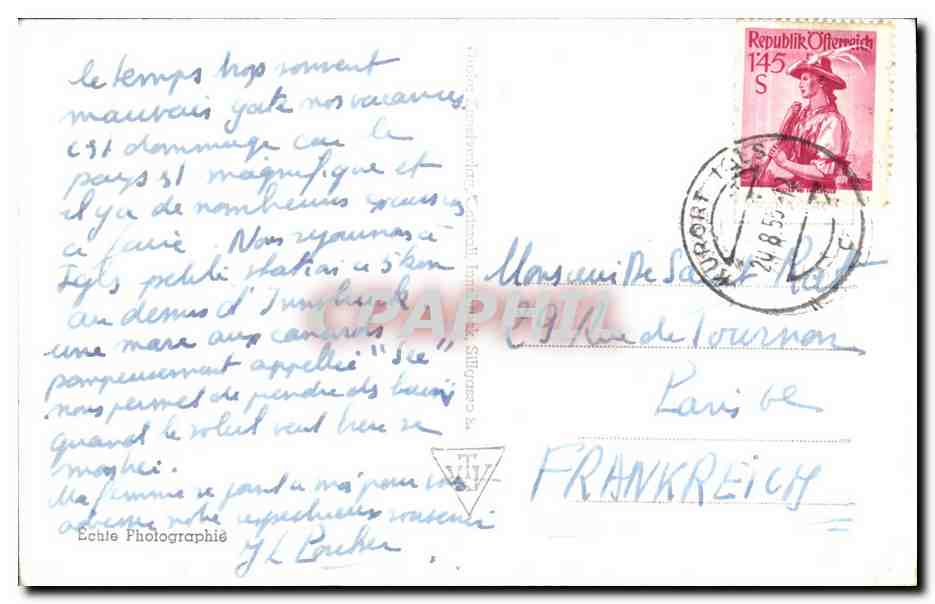 le temps trop souvent
mauvais gate nos vacances
c'est dommage car le
pays est magnifique et
il y a de nombreuses courses
a faire. Nous sejournons à
Igls petite station a 5 km
au dessus d'Innsbruck
une mare aux canards
pompeusement appellée "See"
nous permet de prendre des bains
quand le soleil veut bien se
montrer.
Ma femme se joint a moi pour vous
adresser notre respectueux souvenir
J L
Echte Photographie
Innsbruck, Sillgasse
VTV
Republik Österreich
1'45
S
KURORT IGLS
Monsieur De Saint
Rue de Tournon
Paris 6e
FRANKREICH
CPAPHIL